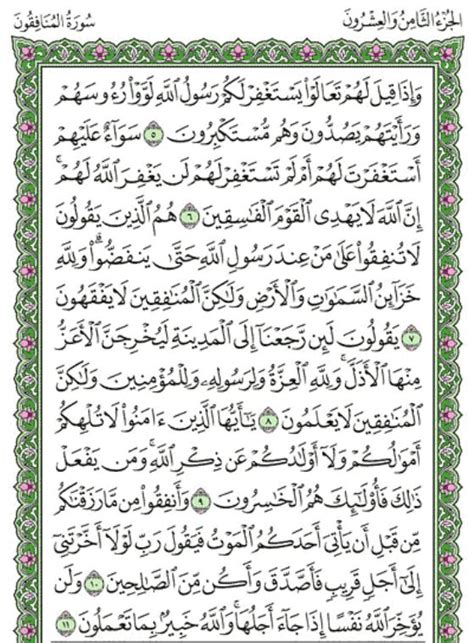 الجُزْءُ الثَّامِنُ وَالْعِشْرُونَ سُورَةُ المُنَافِقُونَ
وَإِذَا قِيلَ لَهُمْ تَعَالَوْاْ يَسْتَغْفِرْ لَكُمْ رَسُولُ ٱللَّهِ لَوَّوْاْ رُءُوسَهُمْ
وَرَأَيْتَهُمْ يَصُدُّونَ وَهُم مُّسْتَكْبِرُونَ ٥ سَوَآءٌ عَلَيْهِمْ
أَسْتَغْفَرْتَ لَهُمْ أَمْ لَمْ تَسْتَغْفِرْ لَهُمْ لَن يَغْفِرَ ٱللَّهُ لَهُمْۚ
إِنَّ ٱللَّهَ لَا يَهْدِى ٱلْقَوْمَ ٱلْفَٰسِقِينَ ٦ هُمُ ٱلَّذِينَ يَقُولُونَ
لَا تُنفِقُواْ عَلَىٰ مَنْ عِندَ رَسُولِ ٱللَّهِ حَتَّىٰ يَنفَضُّواْۗ وَلِلَّهِ
خَزَآئِنُ ٱلسَّمَٰوَٰتِ وَٱلْأَرْضِ وَلَٰكِنَّ ٱلْمُنَٰفِقِينَ لَا يَفْقَهُونَ
٧ يَقُولُونَ لَئِن رَّجَعْنَآ إِلَى ٱلْمَدِينَةِ لَيُخْرِجَنَّ ٱلْأَعَزُّ
مِنْهَا ٱلْأَذَلَّۚ وَلِلَّهِ ٱلْعِزَّةُ وَلِرَسُولِهِۦ وَلِلْمُؤْمِنِينَ وَلَٰكِنَّ
ٱلْمُنَٰفِقِينَ لَا يَعْلَمُونَ ٨ يَٰٓأَيُّهَا ٱلَّذِينَ ءَامَنُواْ لَا تُلْهِكُمْ
أَمْوَٰلُكُمْ وَلَآ أَوْلَٰدُكُمْ عَن ذِكْرِ ٱللَّهِۚ وَمَن يَفْعَلْ
ذَٰلِكَ فَأُوْلَٰٓئِكَ هُمُ ٱلْخَٰسِرُونَ ٩ وَأَنفِقُواْ مِن مَّا رَزَقْنَٰكُم
مِّن قَبْلِ أَن يَأْتِىَ أَحَدَكُمُ ٱلْمَوْتُ فَيَقُولَ رَبِّ لَوْلَآ أَخَّرْتَنِىٓ
إِلَىٰٓ أَجَلٍ قَرِيبٍ فَأَصَّدَّقَ وَأَكُن مِّنَ ٱلصَّٰلِحِينَ ١٠ وَلَن
يُؤَخِّرَ ٱللَّهُ نَفْسًا إِذَا جَآءَ أَجَلُهَاۚ وَٱللَّهُ خَبِيرٌۢ بِمَا تَعْمَلُونَ ١١